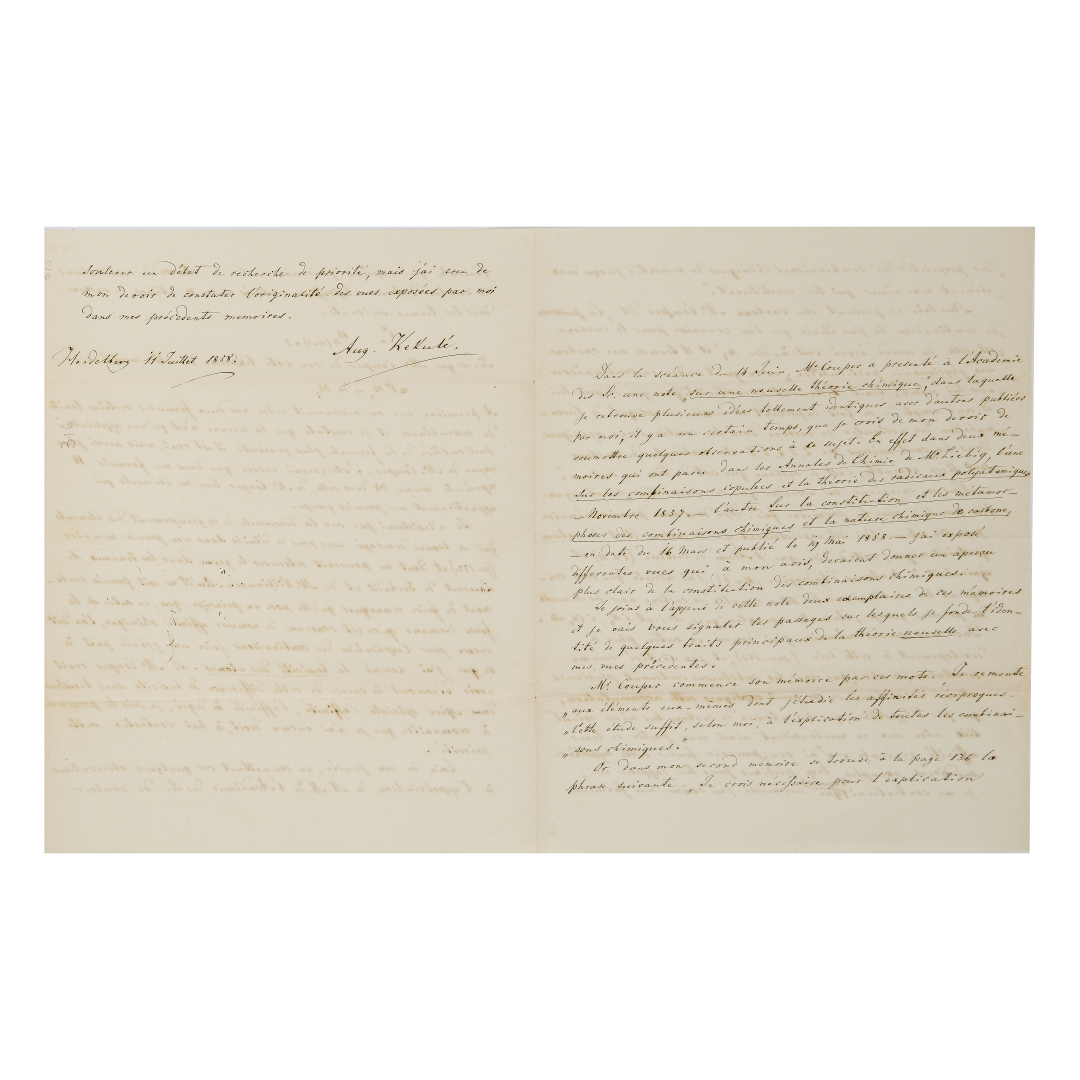 soulever un débat de recherche de priorité, mais j'ai cru de
mon devoir de constater l'originalité des vues exposées par moi
dans mes précédents memoires.
Aug. Kekulé.
Heidelberg 11 Juillet 1858.
Dans la séance du 14 Juin, Mr. Couper a presenté à l'Académie
des Sc. une note „sur une nouvelle théorie chimique„ dans laquelle
je retrouve plusieurs idées tellement identiques avec d'autres publiées
par moi, il y a un certain temps, que je crois de mon devoir de
soumettre quelques observations à ce sujet. En effet dans deux mé-
moires qui ont paru dans les Annales de Chimie de Mr. Liebig, l'une
Sur les combinaisons copulées et la théorie des radicaux polyatomiques
– Novembre 1857. – l'autre Sur la constitution et les métamor-
phoses des combinaisons chimiques et la nature chimique de carbone,
– en date du 16 Mars et publié le 19 Mai 1858. – j'ai exposé
differentes vues qui, à mon avis, devraient donner un aperçu
plus clair de la constitution des combinaisons chimiques.
Je joins à l'appui de cette note deux exemplaires de ces mémoires
et je vais vous signaler les passages sur lesquels je fonde l'iden-
tité de quelques traits principaux de la théorie nouvelle avec
mes vues précédentes.
Mr. Couper commence son mémoire par ces mots. „Je remonte
„aux éléments eux-mêmes dont j'étudie les affinités réciproques.
„Cette étude suffit, selon moi, à l'explication de toutes les combinai-
„sons chimiques."
Or dans mon second memoire se trouve à la page 136 la
phrase suivante. Je crois nécessaire pour l'explication